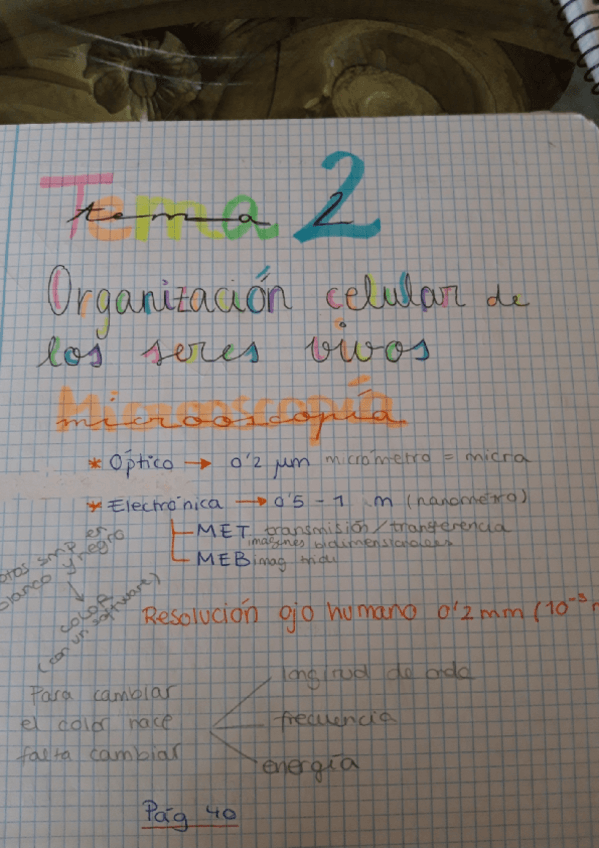 Tema 2
tema
Organización celular de
los seres vivos
Microoscopía
microoscopía
* Óptico → 0'2 μm micrómetro = micra
* Electrónica → 0'5 - 1 .m (nanómetro)
MET transmisión/transferencia
imagines bidimensionales
MEB imag tridi
fotos smp en
blanco y negro
↓
color
(con un software)
Resolución ojo humano 0'2 mm (10⁻³
Para cambiar
el color hace
falta cambiar
longitud de onda
frecuencia
energía
Pág 40